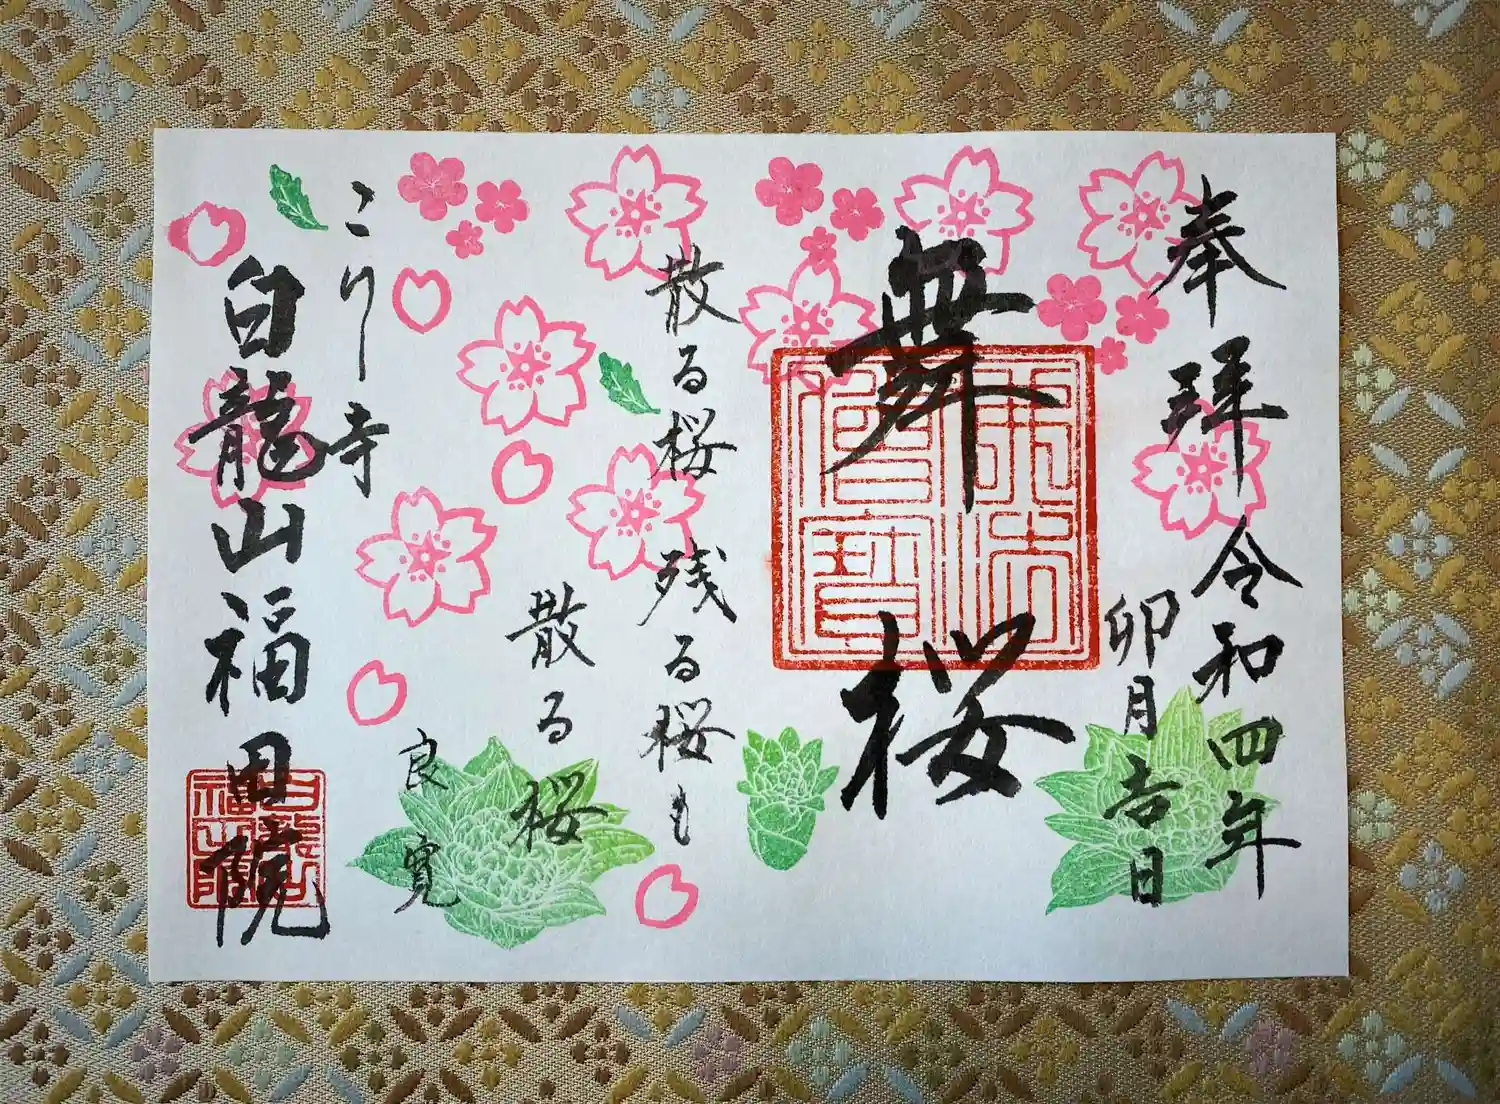 奉拝 令和四年
卯月吉日
舞桜
散る桜残る桜も
散る桜
良寛
こり寺
白龍山福田院
佛法僧寶